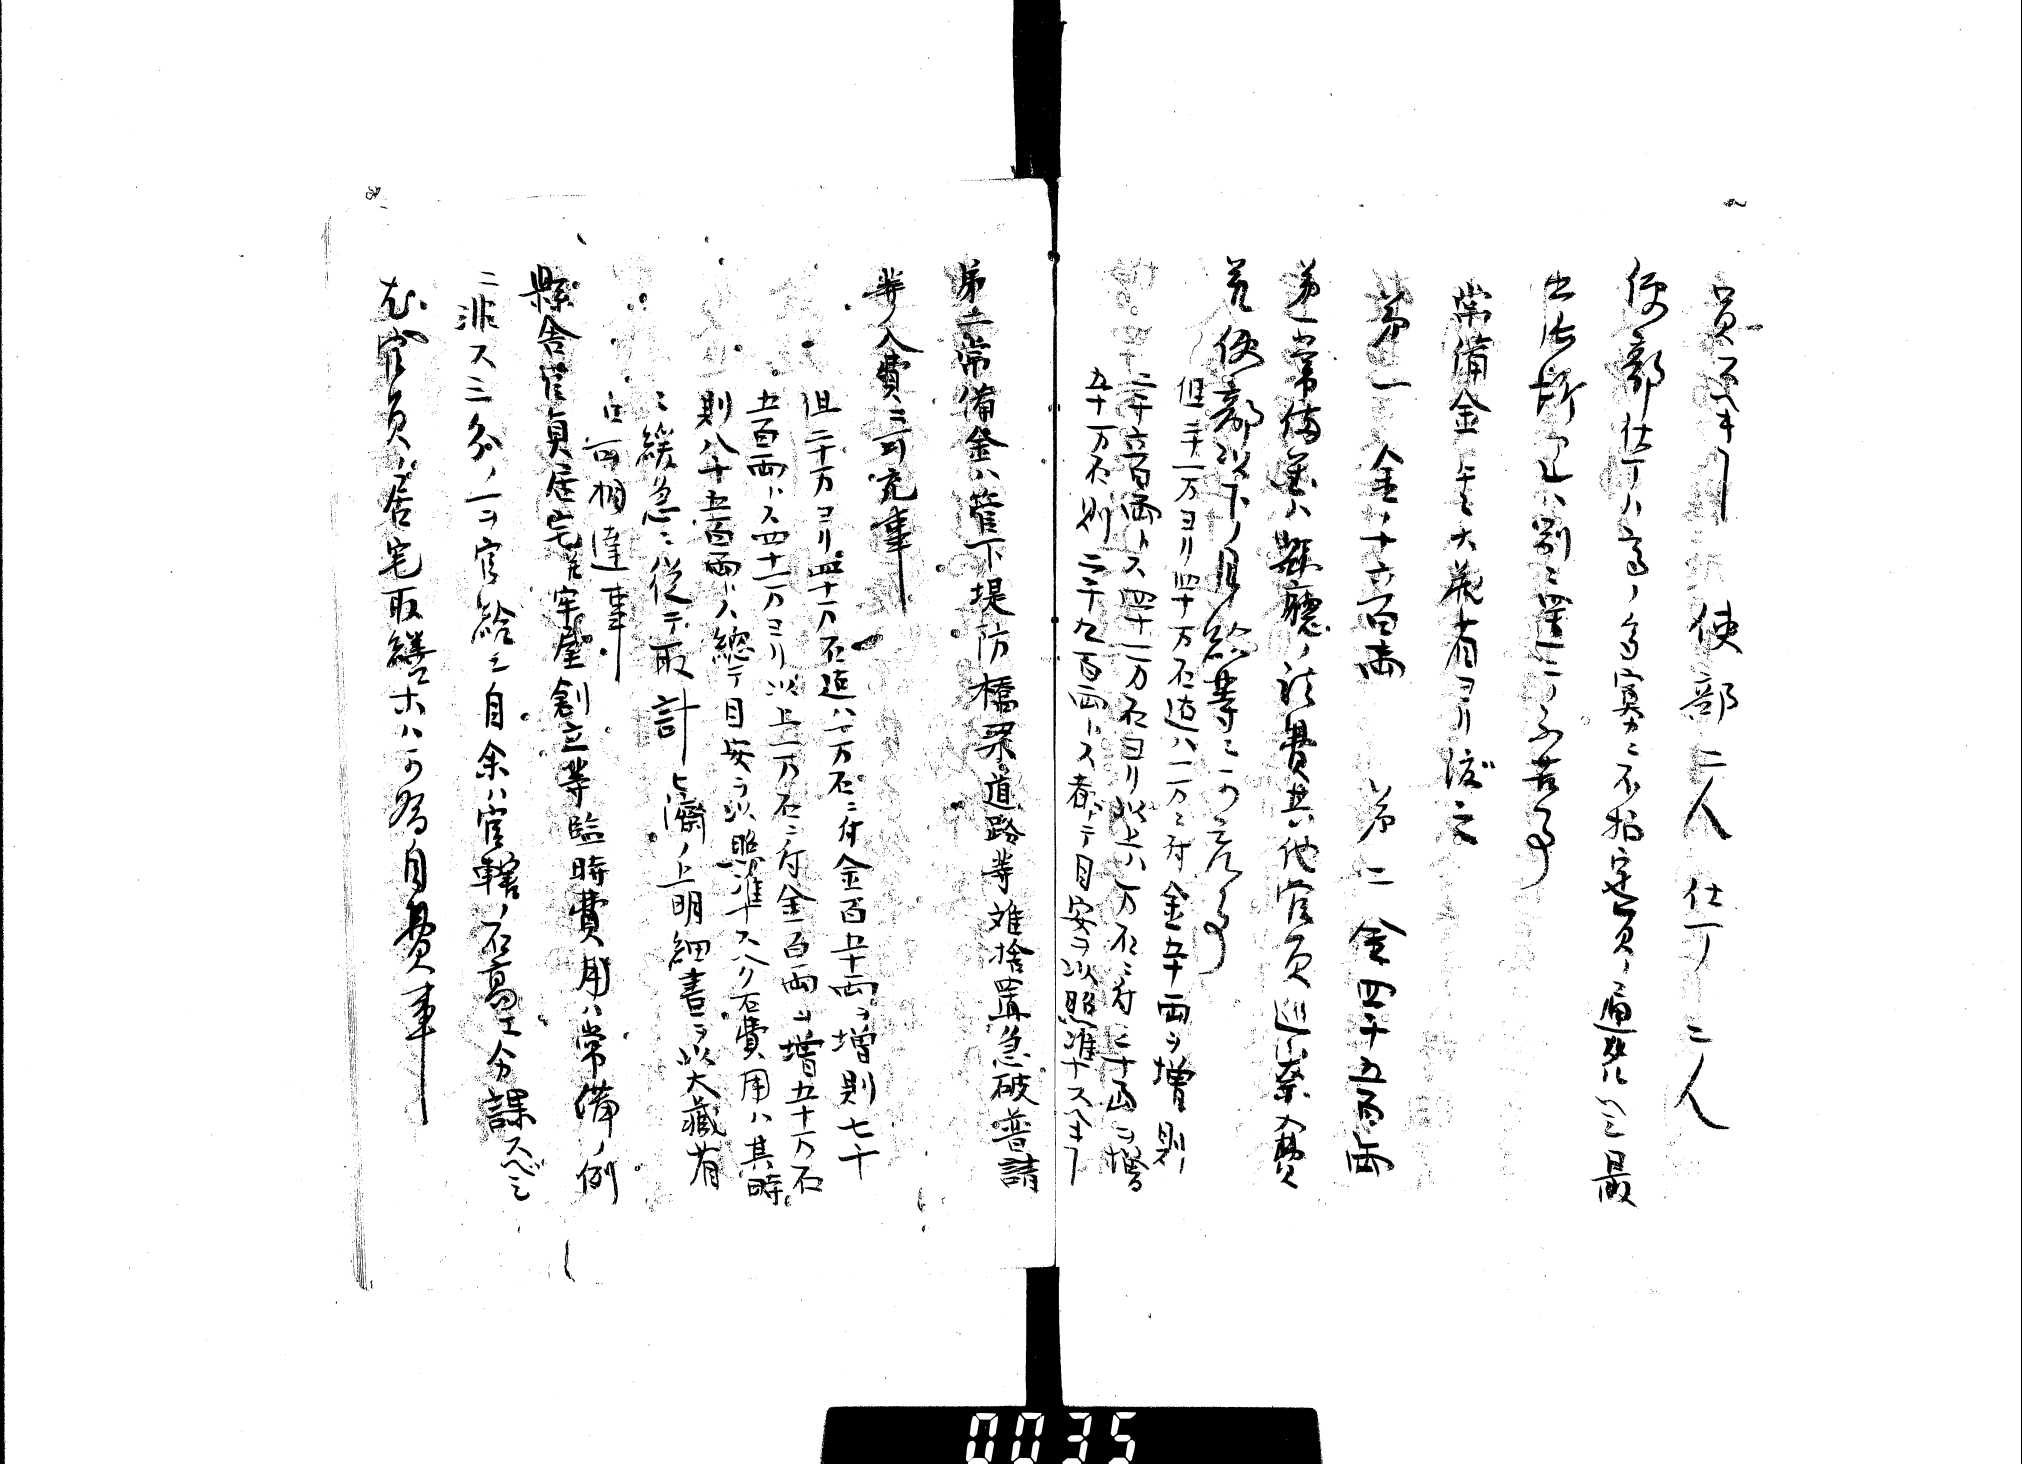 員スヘキヿ 使部二人 仕丁二人
使部仕丁ハ高ノ多寡ニ不拘定員ノ通
出張所アレハ別ニ置コ不苦事
常備金年々大藏省ヨリ渡之
第一 金千六百両 第二 金四千五百両
第一常備金ハ縣廳ノ諸費其他官員巡察入費
并使部以下ノ月給等ニ可充事
但二十一万ヨリ四十万石迄ハ一万ニ付金五十両ヲ増則
二千六百両トス四十一万石ヨリ以上ハ一万石ニ付三十両ヲ増
五十万石則二千九百両トス春テ目安ヲ以照準スヘキヿ
第二常備金ハ管下堤防橋梁道路等難捨置急破普請
等ノ入費ニ可充事
但二十万ヨリ四十万石迄ハ一万石ニ付金百五十両ヲ増則七千
五百両トス四十一万ヨリ以上一万石ニ付金百両ヲ増五十万石
則八千五百両トス總テ目安ヲ以照準スヘク右費用ハ其時
ニ緩急ニ従テ取計匕濟ノ上明細書ヲ以大藏省
江可相達事
縣舎官員居宅并牢屋創立等臨時費用ハ常備ノ例
ニ非ス三分ノ一ヲ官給シ自余ハ官轄ノ石高エ分課スベシ
尤官員ノ居宅取繕ホハ可為自費事
0035